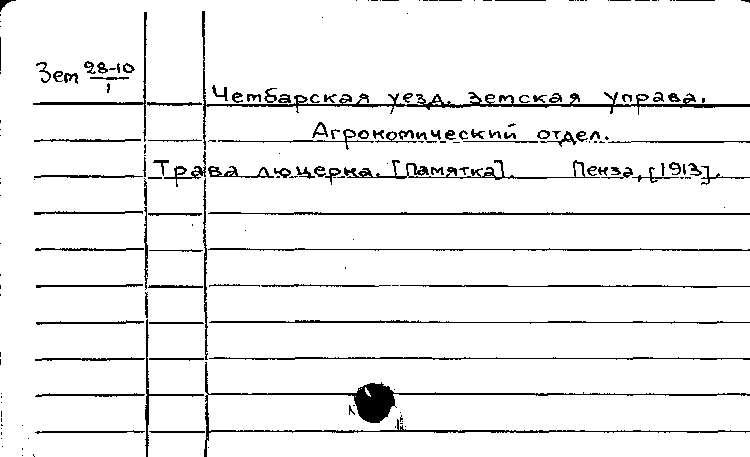 Зем 28-10
1
Чембарская уезд. земская управа.
Агрономический отдел.
Трава люцерна. [Памятка]. Пенза, [1913].